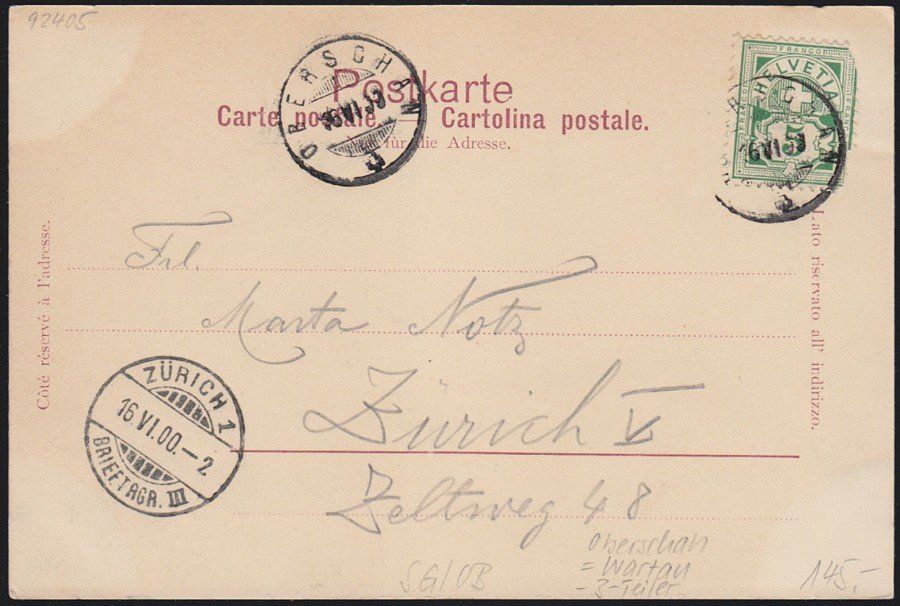 92405
OBERSCHAN
16 VI
Postkarte
Carte postale. Cartolina postale.
für die Adresse.
FRANCO
HELVETIA
5
16 VI
Côté réservé à l'adresse.
Lato riservato all' indirizzo.
Frl.
Marta Notz
Zürich V
Zeltweg 48
ZÜRICH 1
16 VI.00.–2
BRIEFTRGR. III
SG/OB
Oberschan
= Wartau
-3-Teiler
145,-